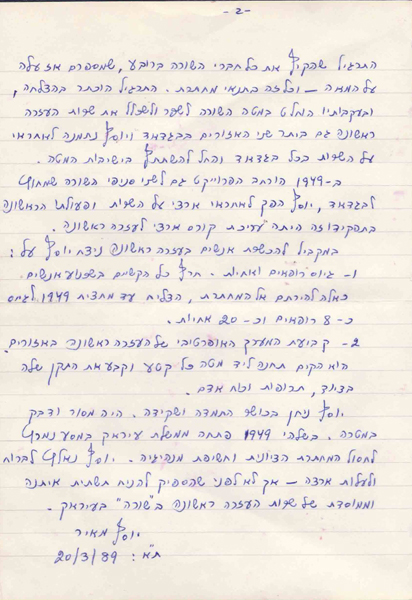 - 2 -
התרגיל שהקיף את כל חברי השורה ברובע, שמספרם אז עלה
על המאה – וכל זה בתנאי מחתרת. התרגיל הוכתר בהצלחה,
ובעקבותיו הוחלט במטה השורה לשפר ולשכלל את שרות העזרה
ראשונה גם ביתר שני האזורים בבגדאד ויוסף נתמנה לאחראי
על השרות בכל בגדאד והחל להשתתף בישיבות המטה.
ב-1949 הורחב הפרוייקט גם לשני סניפי השורה שמחוץ
לבגדאד, יוסף הפך לאחראי ארצי על השרות ופעולתו הראשונה
בתפקידו זה היתה עריכת קורס ארצי לעזרה ראשונה.
במקביל להכשרת אנשים בעזרה ראשונה ניצח יוסף על:
1- גיוס רופאים ואחיות. חרף כל הקשיים בשכנוע אנשים
כאלה להירתם אל המחתרת, הצליח עד מחצית 1949 לגייס
כ-8 רופאים וכ-20 אחיות.
2- קביעת המערך האופרטיבי של העזרה הראשונה באזורים.
הוא הקים תחנה ליד מטה כל קטע וקבע את התקן שלה
בציוד, תרופות וכח אדם.
יוסף ניחן בכושר התמדה ושקידה. היה מסור ודבק
במטרה. בשלהי 1949 פתחה ממשלת עיראק במסע נמרץ
לחסול המחתרת הציונית וחשיפת מנהיגיה. יוסף נאלץ לברוח
ולעלות ארצה – אך לא לפני שהספיק להניח תשתית איתנה
וממוסדת של שרות העזרה ראשונה ב"שורה" בעיראק.
יוסף מאיר
ת"א: 20/3/89